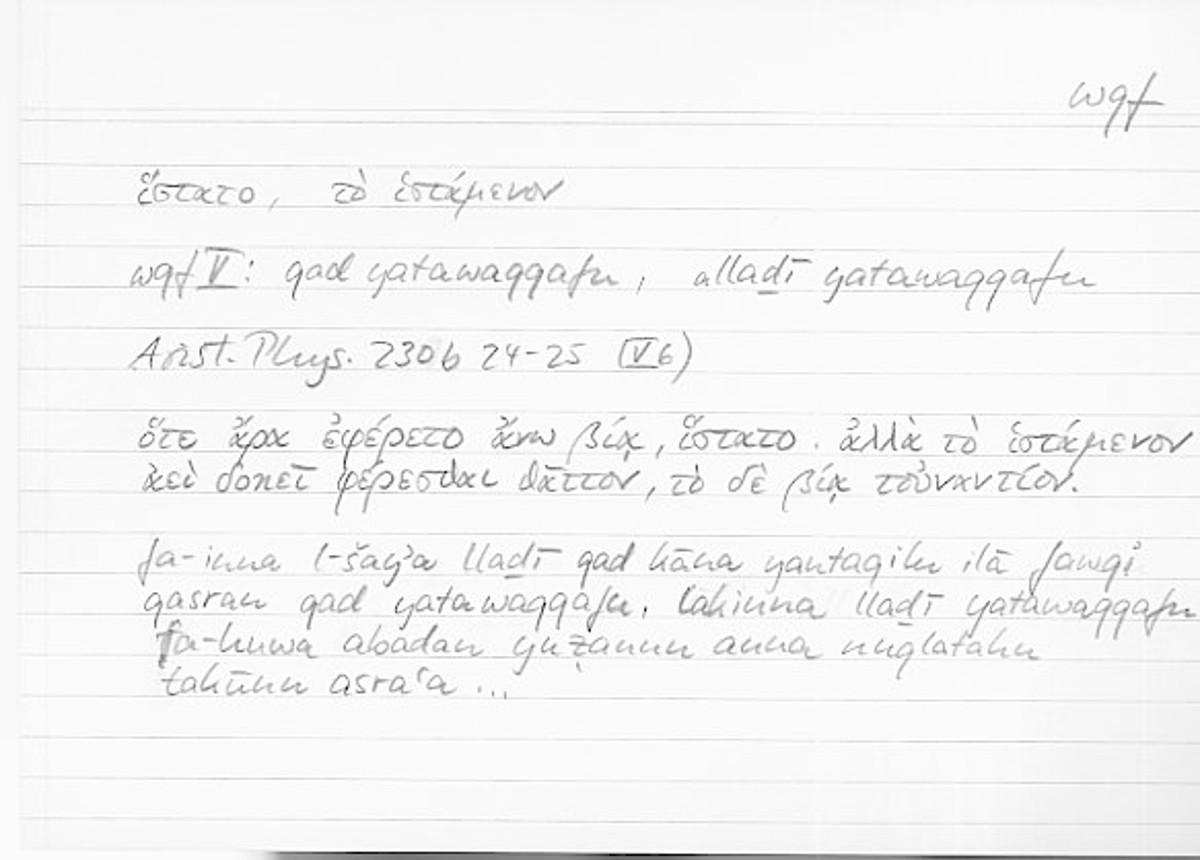 wqf
ἵστατο, τὸ ἱστάμενον
wqf V: qad yatawaqqafu, allaḏī yatawaqqafu
Arist. Phys. 230b 24-25 (V6)
ὅτε ἄρα ἐφέρετο ἄνω βίᾳ, ἵστατο. ἀλλὰ τὸ ἱστάμενον
ἀεὶ δοκεῖ φέρεσθαι θᾶττον, τὸ δὲ βίᾳ τοὐναντίον.
fa-inna l-šayʾa llaḏī qad kāna yantaqilu ilā fawqi
qasran qad yatawaqqafu, lākinna llaḏī yatawaqqafu
fa-huwa abadan yuẓannu anna nuqlatahu
takūnu asraʿa ...